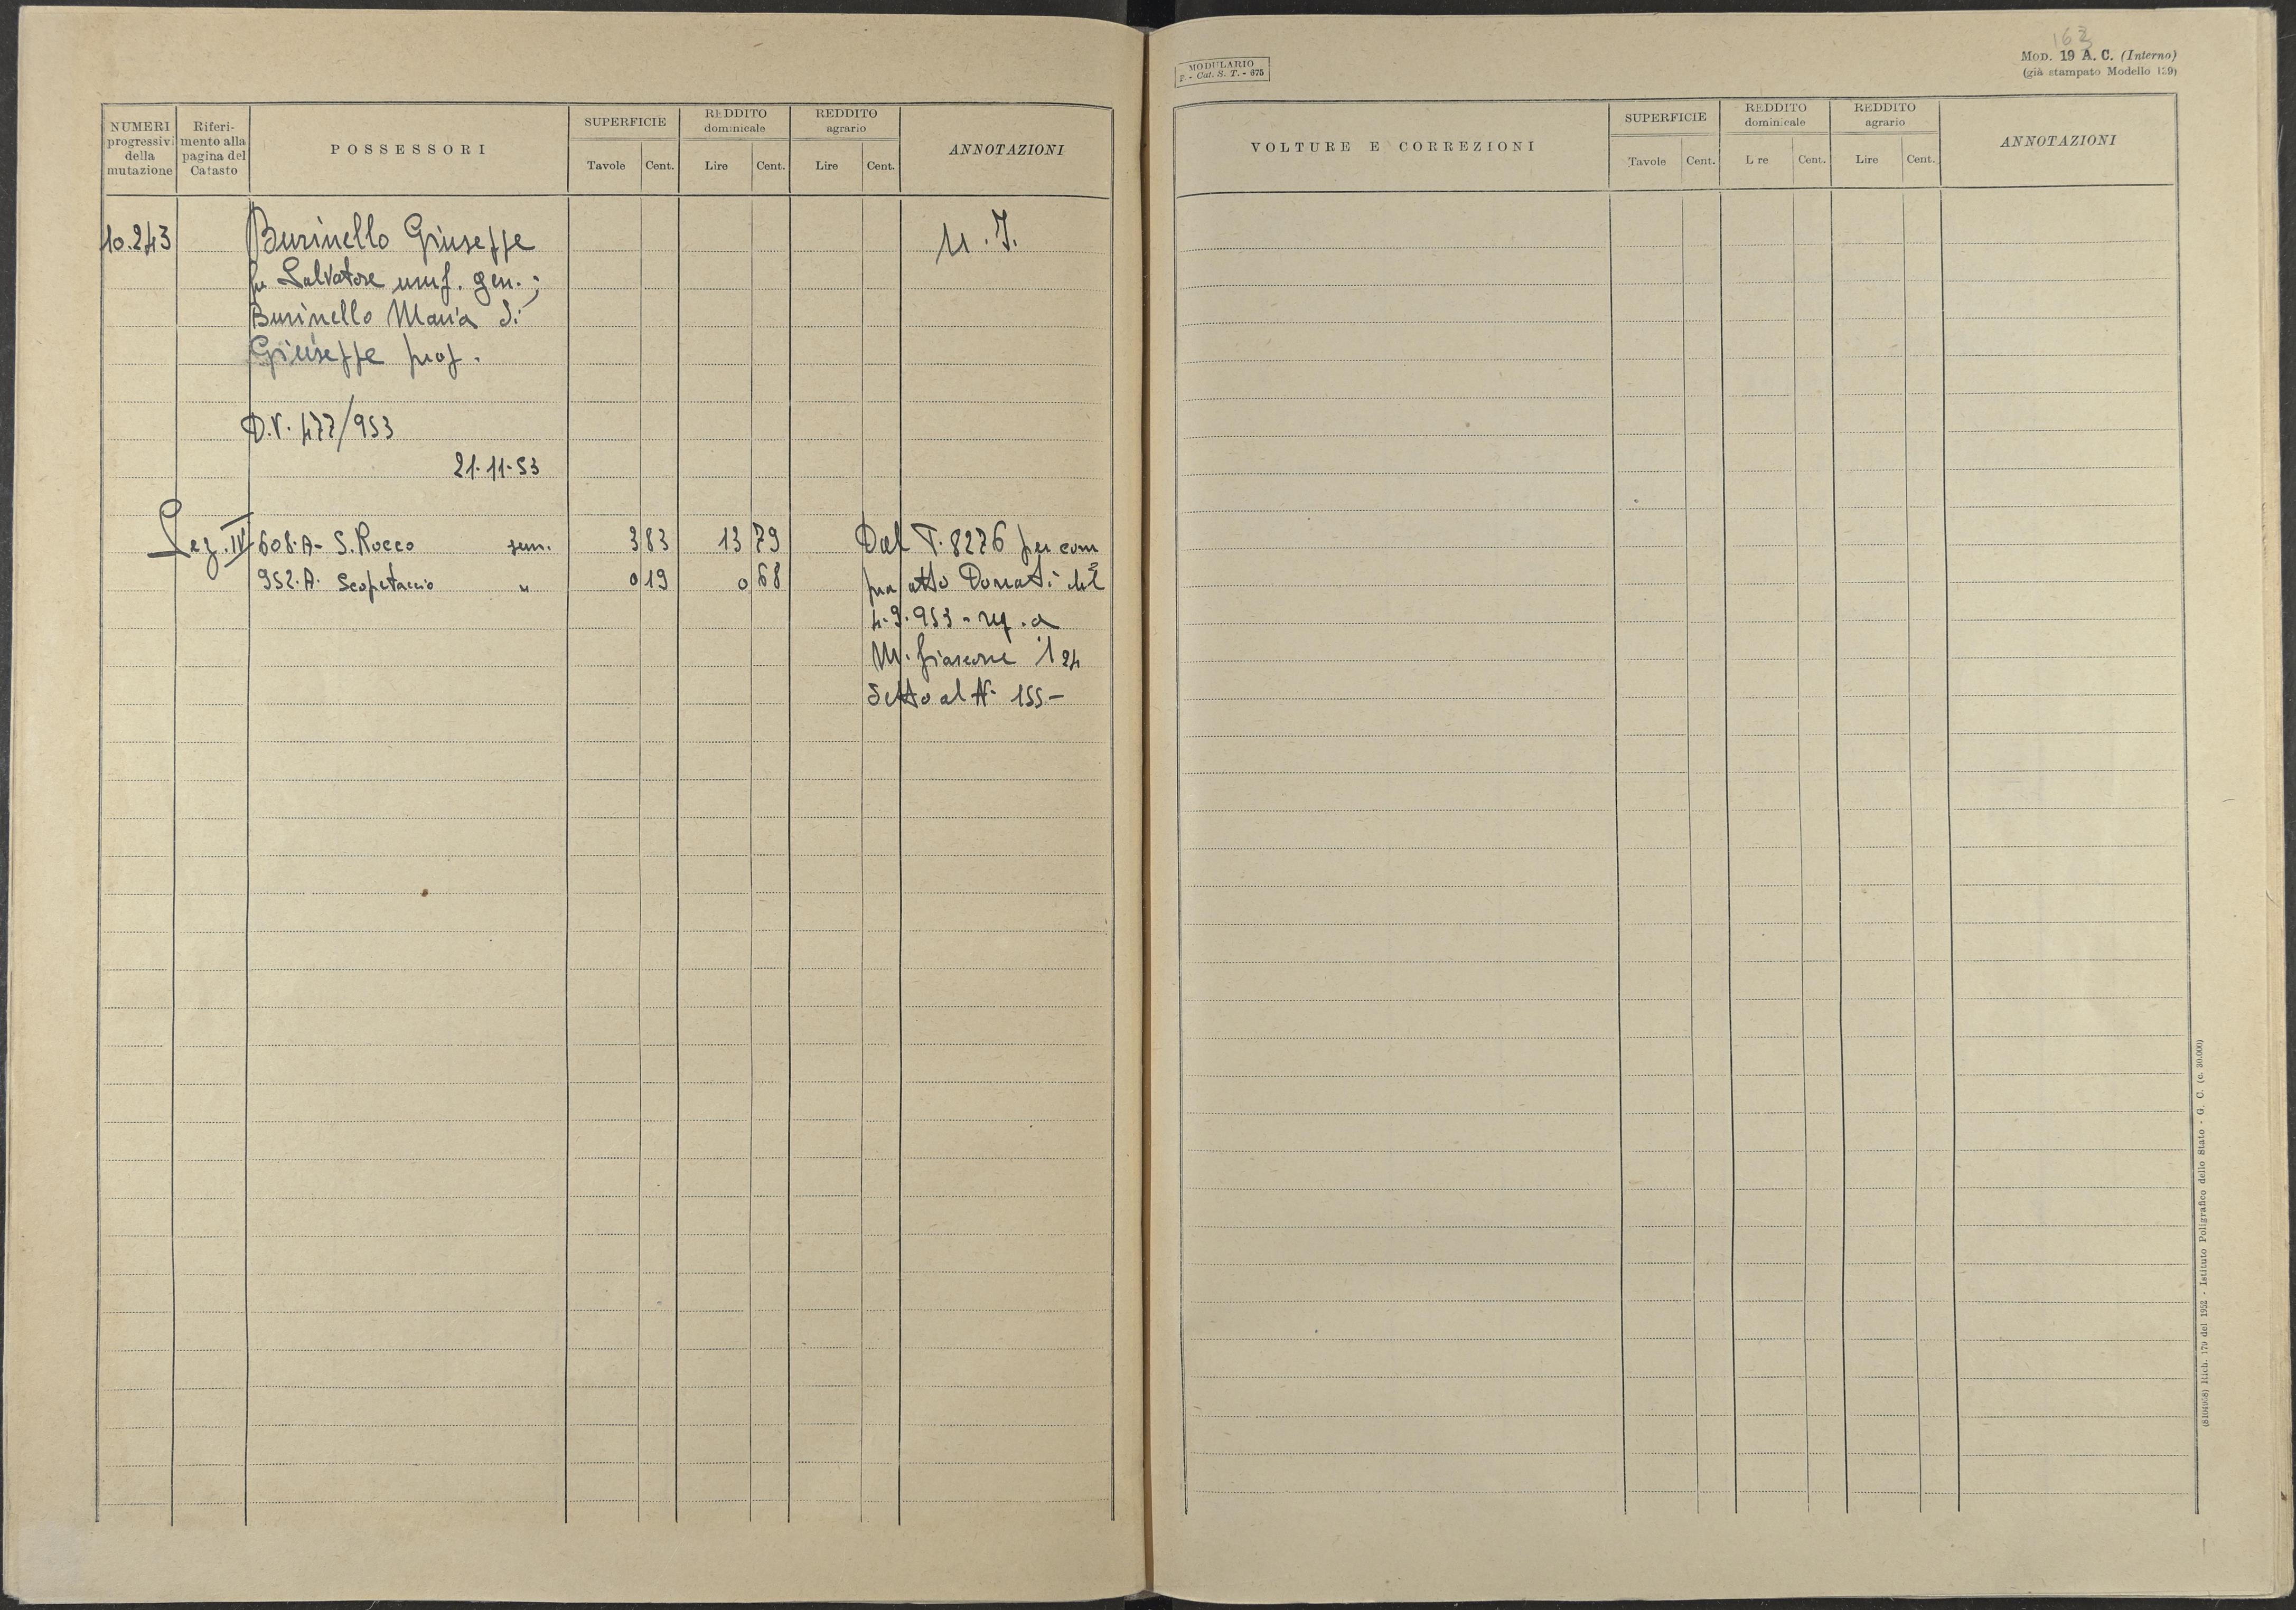 NUMERI progressivi della mutazione
Riferimento alla pagina del Catasto
POSSESSORI
SUPERFICIE
Tavole Cent.
REDDITO dominicale
Lire Cent.
REDDITO agrario
Lire Cent.
ANNOTAZIONI
10.243 Burinello Giuseppe U.I.
fu Salvatore usuf. gen.;
Burinello Maria di
Giuseppe prop.
D.V. 477/953
21-11-53
Sez. IV 608.A- S. Rocco sem. 3 83 13 79 Dal P. 8276 per com
952.A. Scopetaccio " 0 19 0 68 pra atto Donati del
4-9-953 - reg. a
M. Giascone il 24
detto al N° 155-
MODULARIO
F. - Cat. S. T. - 675
163
MOD. 19 A. C. (Interno)
(già stampato Modello 129)
VOLTURE E CORREZIONI
SUPERFICIE
Tavole Cent.
REDDITO dominicale
L re Cent.
REDDITO agrario
Lire Cent.
ANNOTAZIONI
Rich. 170 del 1952 - Istituto Poligrafico dello Stato - G. C. (c. 30.000)